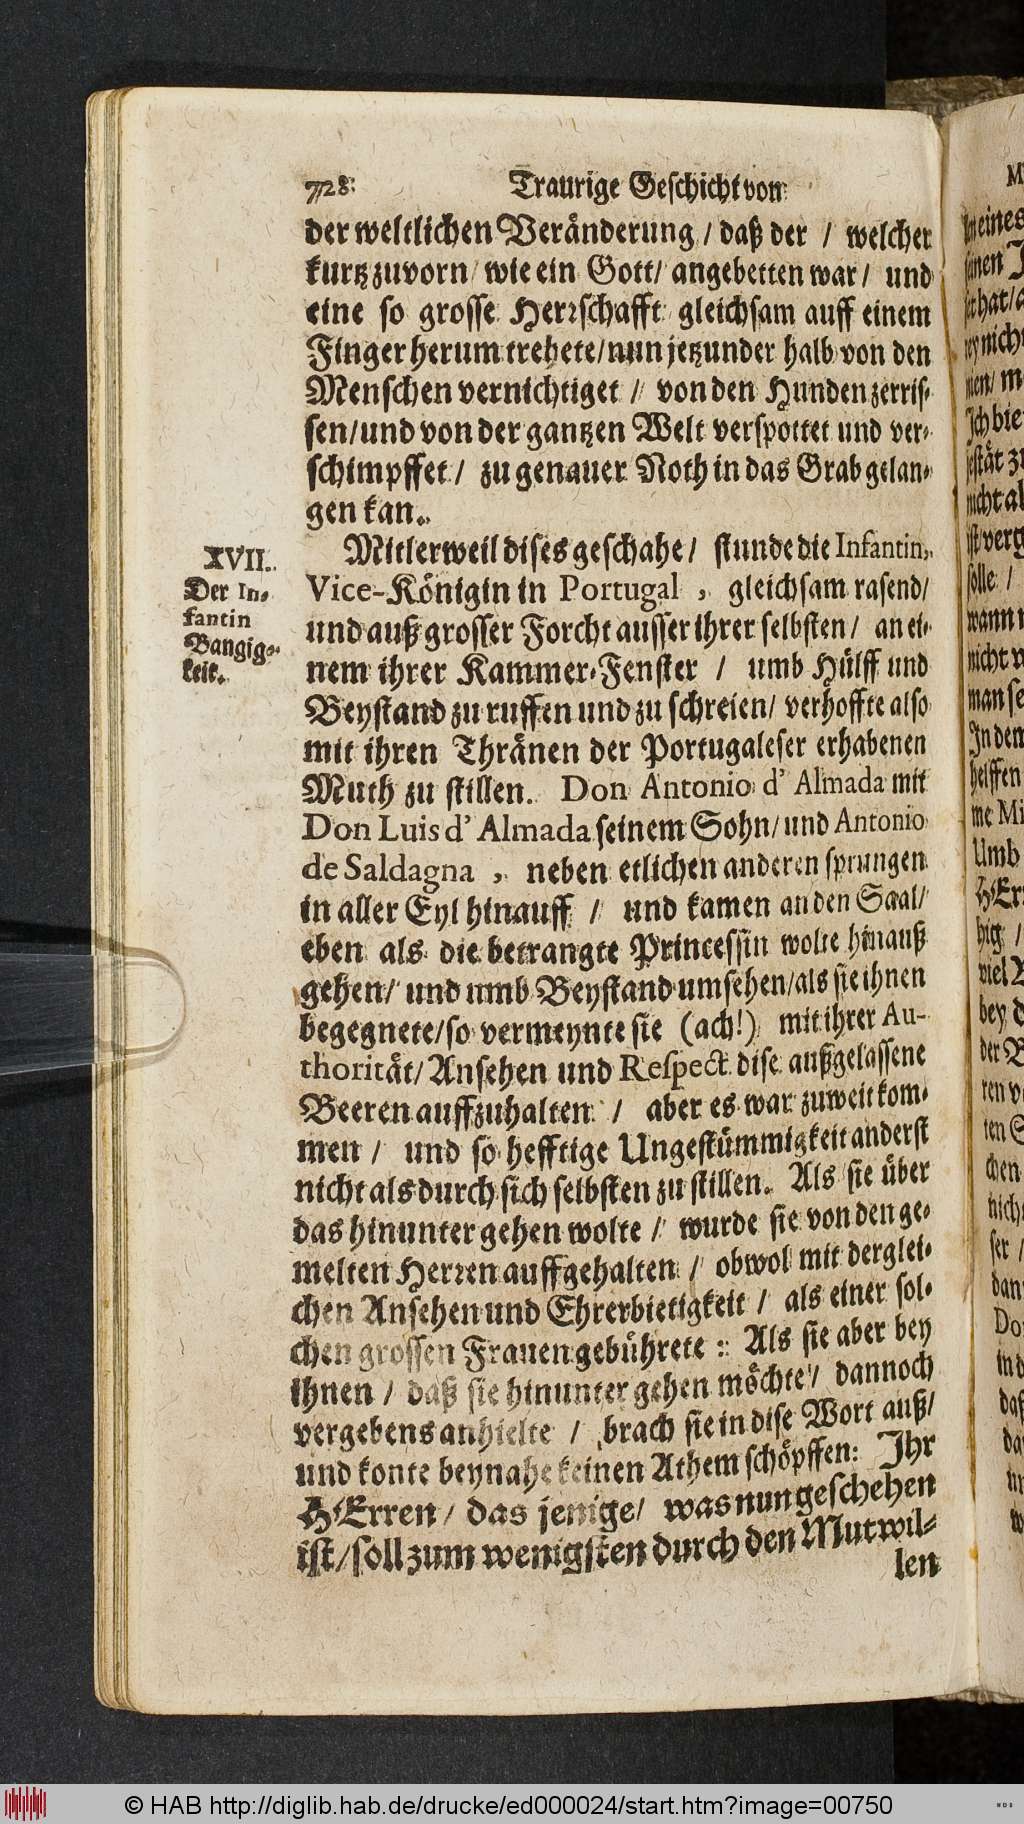 728. Traurige Geschicht von
der weltlichen Veränderung / daß der / welcher
kurtz zuvorn / wie ein Gott / angebetten war / und
eine so grosse Herrschafft gleichsam auff einem
Finger herum trehete / nun jetzunder halb von den
Menschen vernichtiget / von den Hunden zerris-
sen / und von der gantzen Welt verspottet und ver-
schimpffet / zu genauer Noth in das Grab gelan-
gen kan.
XVII.
Der In-
fantin
Bangig-
keit.
Mitlerweil dises geschahe / stunde die Infantin,
Vice-Königin in Portugal, gleichsam rasend /
und auß grosser Forcht ausser ihrer selbsten / an ei-
nem ihrer Kammer-Fenster / umb Hülff und
Beystand zu ruffen und zu schreien / verhoffte also
mit ihren Thränen der Portugaleser erhabenen
Muth zu stillen. Don Antonio d' Almada mit
Don Luis d' Almada seinem Sohn / und Antonio
de Saldagna, neben etlichen anderen sprungen
in aller Eyl hinauff / und kamen an den Saal /
eben als die betrangte Princessin wolte hinauß
gehen / und umb Beystand umsehen / als sie ihnen
begegnete / so vermeynte sie (ach!) mit ihrer Au-
thorität / Ansehen und Respect dise außgelassene
Beeren auffzuhalten / aber es war zuweit kom-
men / und so hefftige Ungestümmigkeit anderst
nicht als durch sich selbsten zu stillen. Als sie über
das hinunter gehen wolte / wurde sie von den ge-
melten Herren auffgehalten / obwol mit derglei-
chen Ansehen und Ehrerbietigkeit / als einer sol-
chen grossen Frauen gebührete: Als sie aber bey
ihnen / daß sie hinunter gehen möchte / dannoch
vergebens anhielte / brach sie in dise Wort auß /
und konte beynahe keinen Athem schöpffen: Ihr
HErren / das jenige / was nun geschehen
ist / soll zum wenigsten durch den Mutwil-
len
© HAB http://diglib.hab.de/drucke/ed000024/start.htm?image=00750